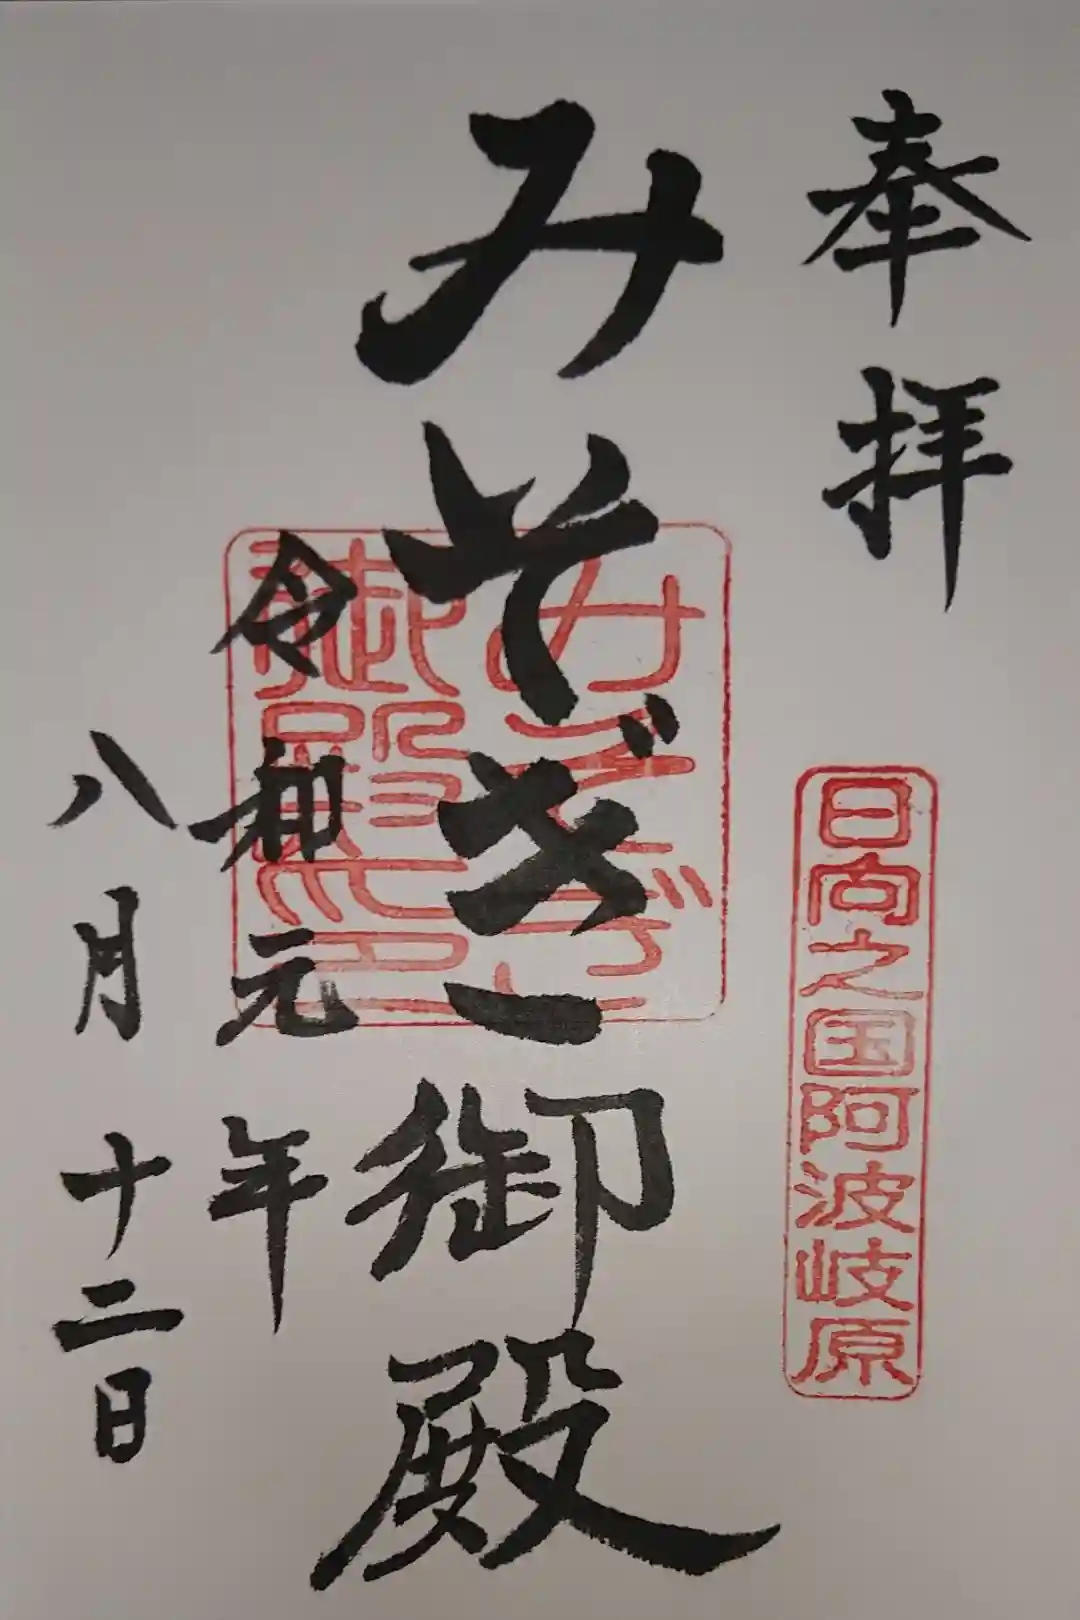 奉拝
日向之国阿波岐原
みそぎ御殿
みそぎ御殿之印
令和元年
八月十二日